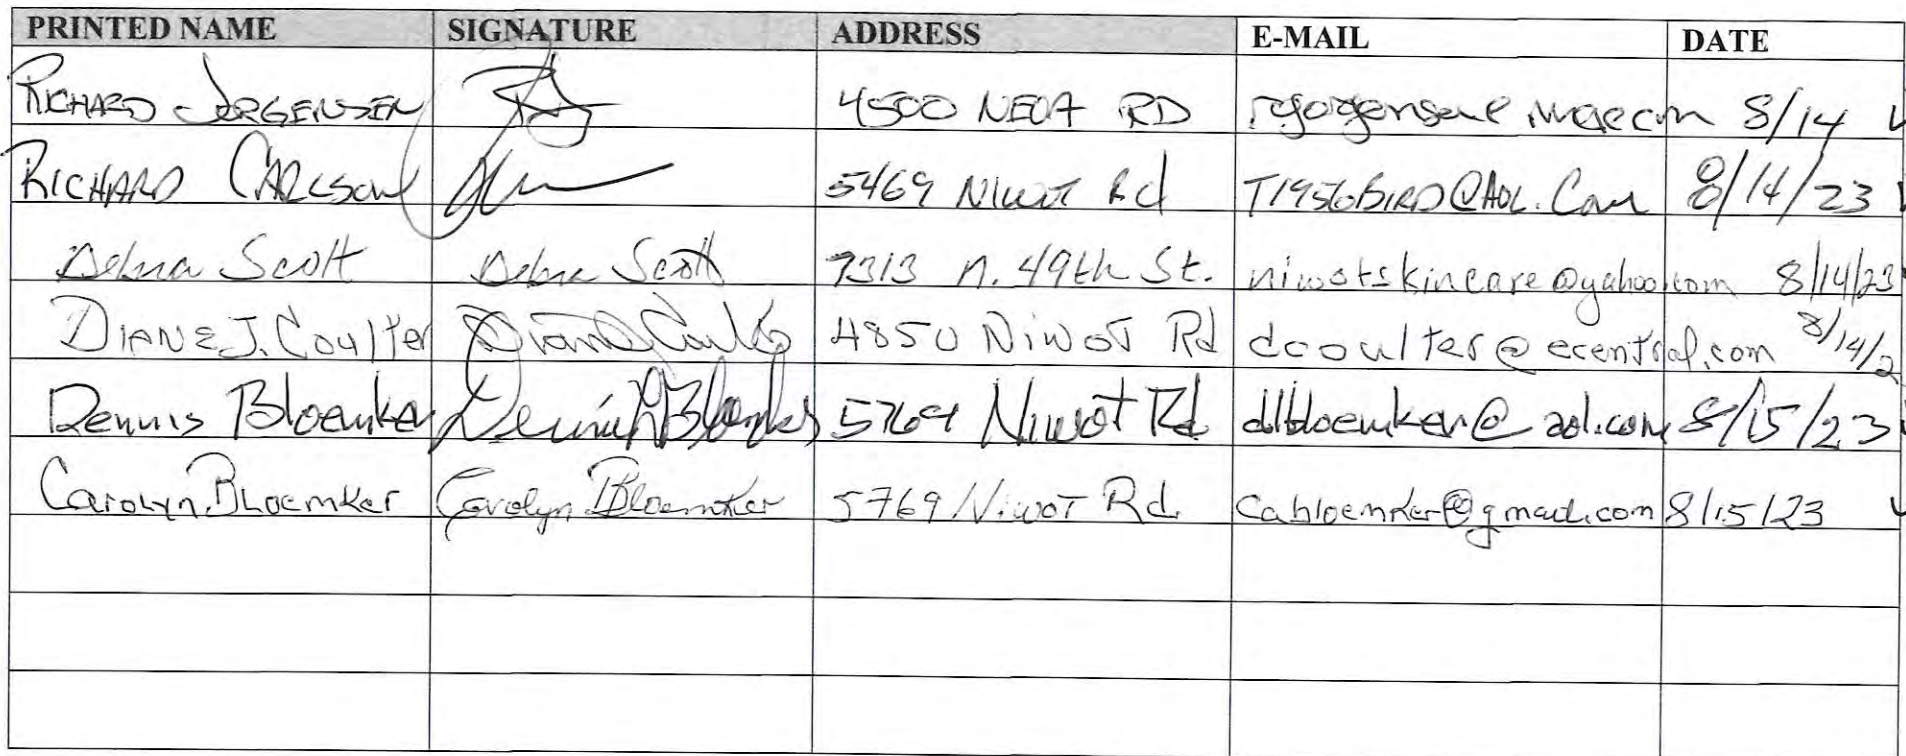 PRINTED NAME SIGNATURE ADDRESS E-MAIL DATE
RICHARD JORGENSEN 4500 NEVA RD 8/14
RICHARD CARLSON 5469 NIWOT Rd T1956BIRD@AOL.Com 8/14/23
Debra Scott Debra Scott 7313 N. 49th St. niwotskincare@yahoo.com 8/14/23
DIANE J. Coulter Diane Coulter 4850 NiWOT Rd dcoulter@ecentral.com 8/14/2
Dennis Bloemker Dennis Bloemker 5769 Niwot Rd dlbloemker@aol.com 8/15/23
Carolyn Bloemker Carolyn Bloemker 5769 Niwot Rd. cabloemker@gmail.com 8/15/23